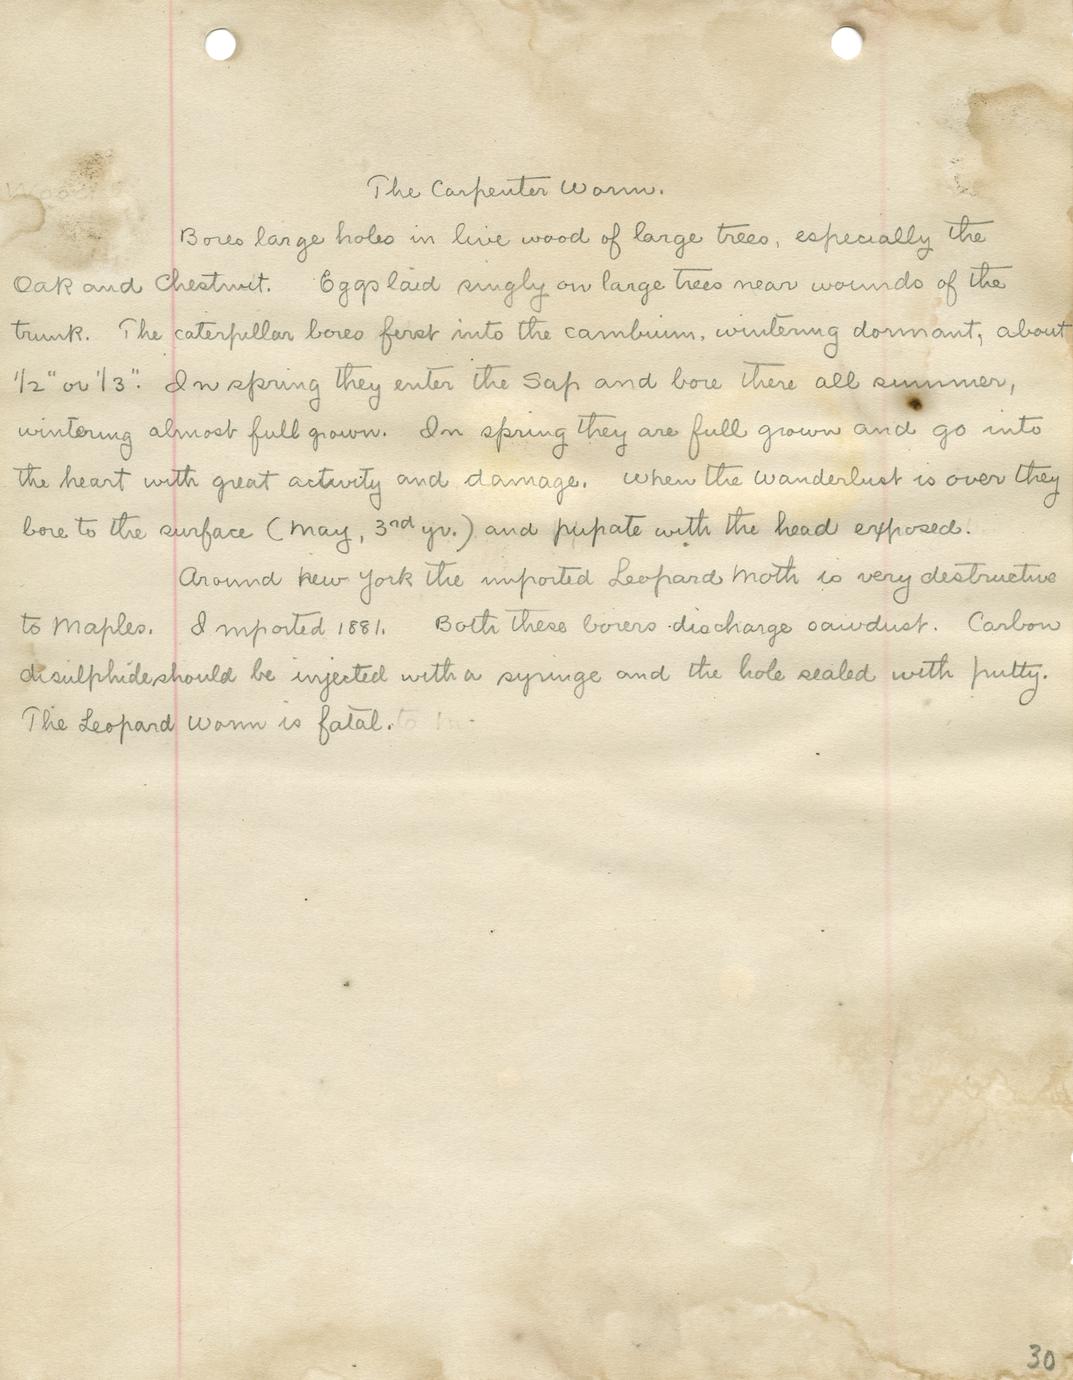 The Carpenter Worm.
Bores large holes in live wood of large trees, especially the
Oak and Chestnut. Eggs laid singly on large trees near wounds of the
trunk. The caterpillar bores first into the cambium, wintering dormant, about
1/2" or 1/3". In spring they enter the Sap and bore there all summer,
wintering almost full grown. In spring they are full grown and go into
the heart with great activity and damage. When the wanderlust is over they
bore to the surface (May, 3rd yr.) and pupate with the head exposed.
Around New York the imported Leopard Moth is very destructive
to Maples. Imported 1881. Both these borers discharge sawdust. Carbon
disulphide should be injected with a syringe and the hole sealed with putty.
The Leopard Worm is fatal.
30